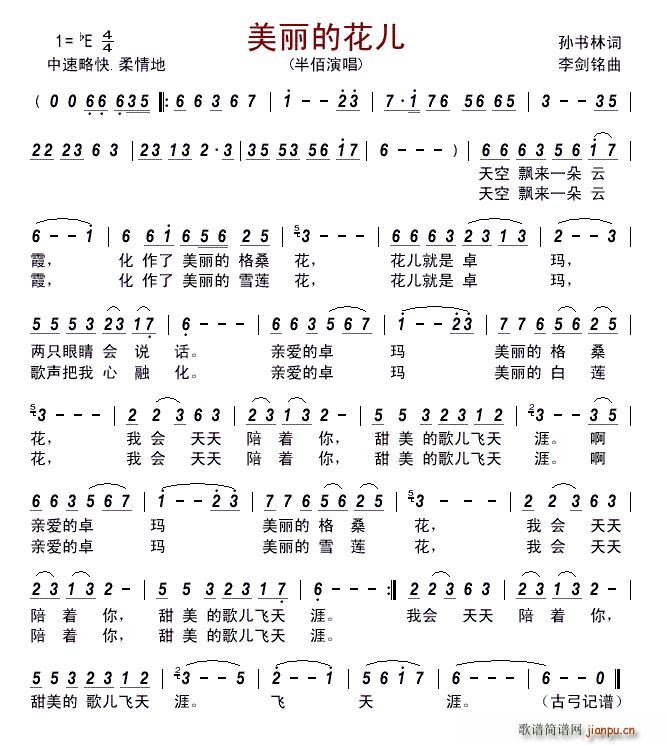 美丽的花儿
1= ♭E 4/4
孙书林词
中速略快 柔情地
(半佰演唱)
李剑铭曲
( 0 0 66 635 ‖: 6 6 3 6 7 | 1 - - 23 | 7 · 1 76 56 65 | 3 - - 35 |
22 23 6 3 | 23 13 2 · 3 | 35 53 56 17 | 6 - - - ) | 6 6 6 3 5 6 1 7 |
天空 飘来一朵 云
天空 飘来一朵 云
6 - - 1 | 6 6 1 6 56 2 5 | 3 - - - | 6 6 6 3 2 3 1 3 | 2 - - 3 |
霞, 化 作了 美丽的 格桑 花, 花儿就是 卓 玛,
霞, 化 作了 美丽的 雪莲 花, 花儿就是 卓 玛,
5 5 5 3 23 17 | 6 - - - | 6 6 3 5 6 7 | 1 - - 23 | 7 7 6 5 6 2 5 |
两只眼睛 会 说 话。 亲爱的卓 玛 美丽的 格 桑
歌声把我 心 融 化。 亲爱的卓 玛 美丽的 白 莲
3 - - - | 2 2 3 6 3 | 2 3 1 3 2 - | 5 5 5 2 3 2 1 2 | 3 - - 3 5 |
花, 我 会 天天 陪 着 你, 甜 美 的 歌儿飞天 涯。 啊
花, 我 会 天天 陪 着 你, 甜 美 的 歌儿飞天 涯。 啊
6 6 3 5 6 7 | 1 - - 2 3 | 7 7 6 5 6 2 5 | 3 - - - | 2 2 3 6 3 |
亲爱的卓 玛 美丽的 格 桑 花, 我 会 天天
亲爱的卓 玛 美丽的 雪 莲 花, 我 会 天天
2 3 1 3 2 - | 5 5 5 2 3 2 1 7 | 6 - - - :‖ 2 2 3 6 3 | 2 3 1 3 2 - |
陪 着 你, 甜 美 的歌儿飞天 涯。 我会 天天 陪 着 你,
陪 着 你, 甜 美 的歌儿飞天 涯。
5 5 5 2 3 2 1 2 | 3 - - 5 | 2 - - - | 5 6 1 7 | 6 - - - | 6 - - - ‖
甜美的 歌儿飞天 涯。 飞 天 涯。 (古弓记谱)
歌谱简谱网
jianpu.cn